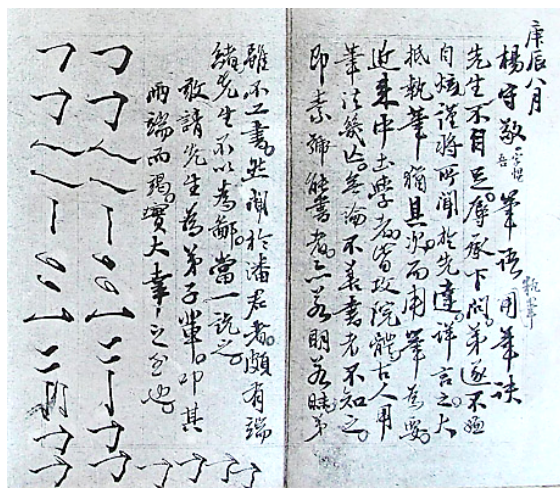 庚辰八月
楊守敬 惺吾 筆語 用筆訣
執筆
先生不自足。辱承下問。弟遂不
自炫謹將所聞於先達。詳言之。大
抵執筆猶其次。而用筆為要。
近来中土學者。皆攻院體。古人用
筆法幾亡。無論不善書者不知之。
即素號能書者。亦若明若昧。弟
雖不工書。然聞於潘君者。頗有端
緒。先生不以為鄙。當一説之。
敢請先生為弟子輩。叩其
兩端而竭。實大幸之至也。